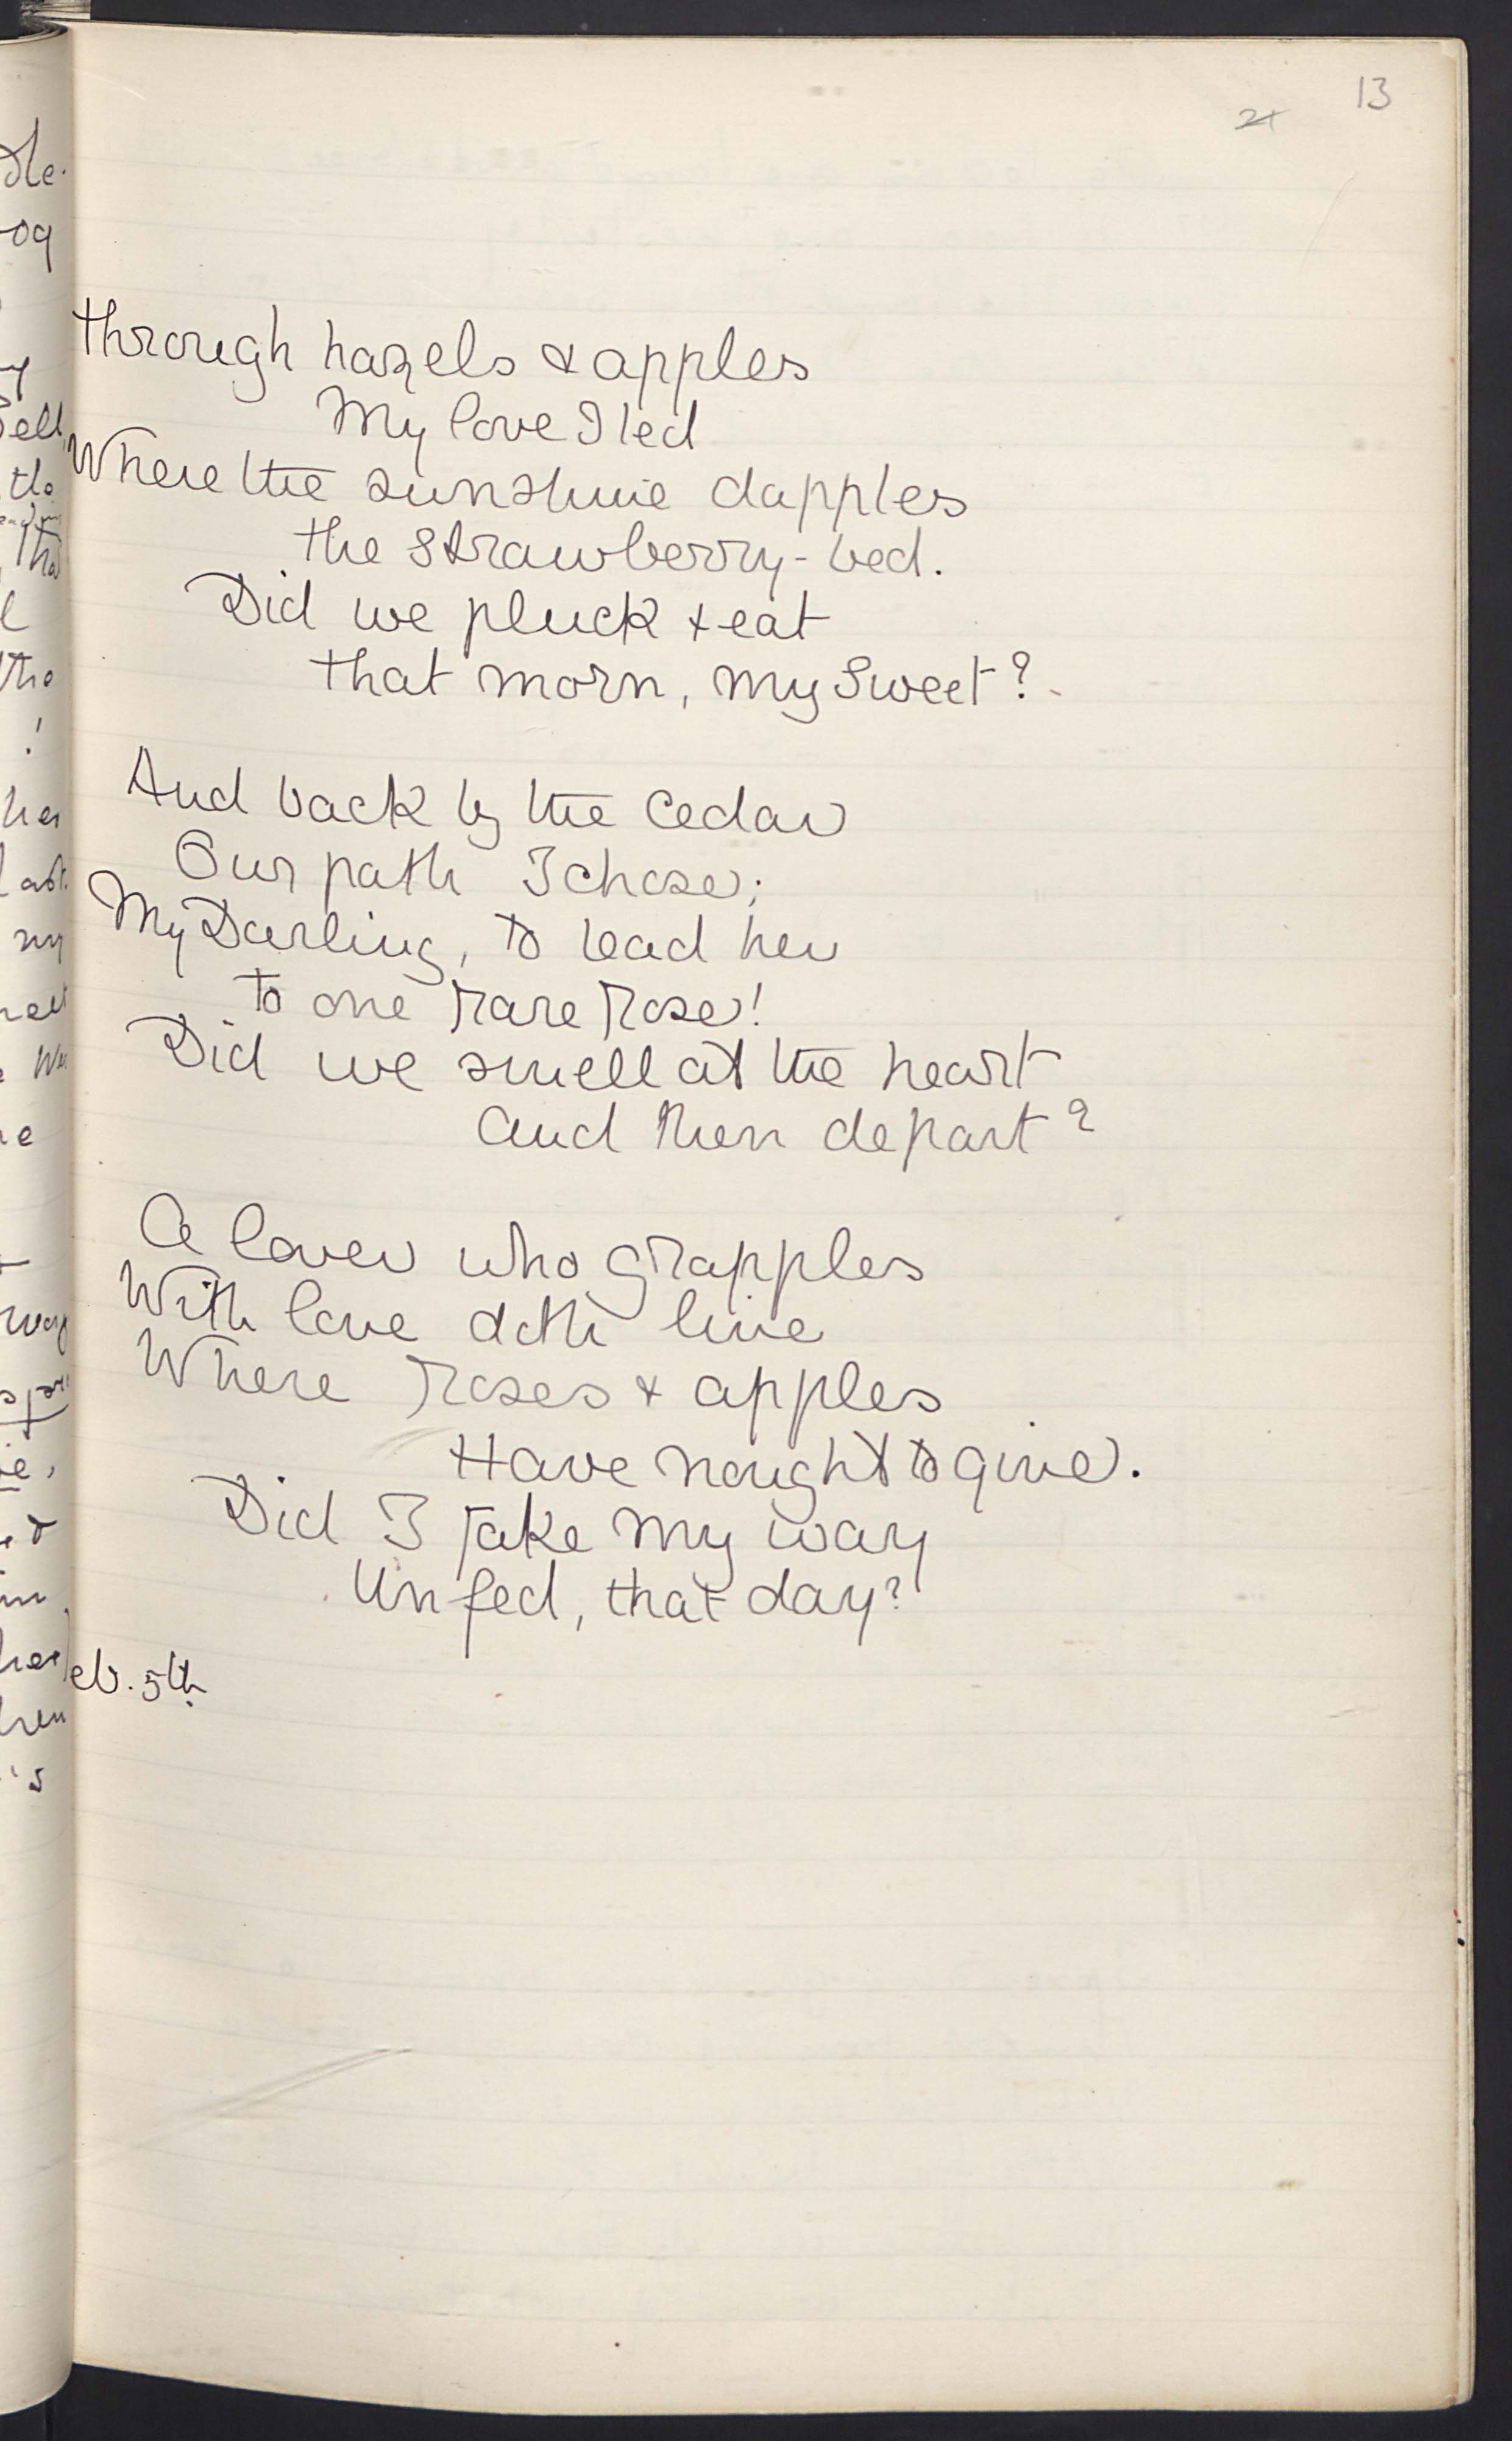 13
21
through hazels & apples
My love I led
Where the sunshine dapples
the strawberry-bed.
Did we pluck & eat
that morn, my Sweet?
And back by the Cedar
Our path I chose;
My Darling, to lead her
to one rare rose!
Did we smell at the heart
And then depart?
A lover who grapples
With love doth live
Where roses & apples
Have nought to give.
Did I take my way
Unfed, that day?
eb. 5th